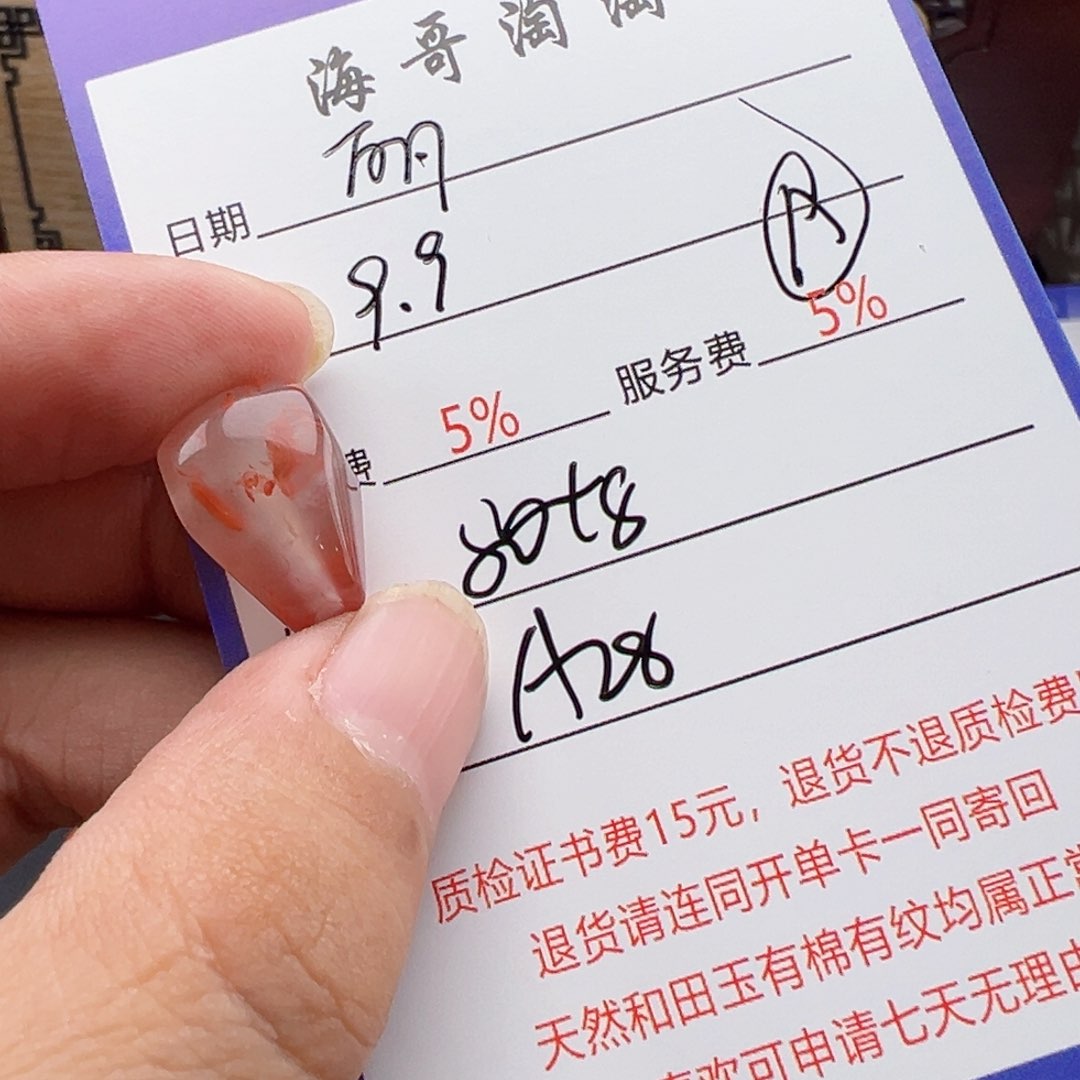 海哥淘淘
日期
9.9
费 5% 服务费 5%
80+8
A28
质检证书费15元，退货不退质检费
退货请连同开单卡一同寄回
天然和田玉有棉有纹均属正常
欢可申请七天无理由